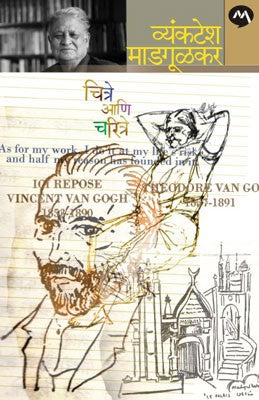 व्यंकटेश
माडगूळकर
चित्रे
आणि
चरित्रे
As for my work, I do it at my life's risk
and half my reason has founded in it
ICI REPOSE
VINCENT VAN GOGH
1853-1890
THEODORE VAN GO
1857-1891